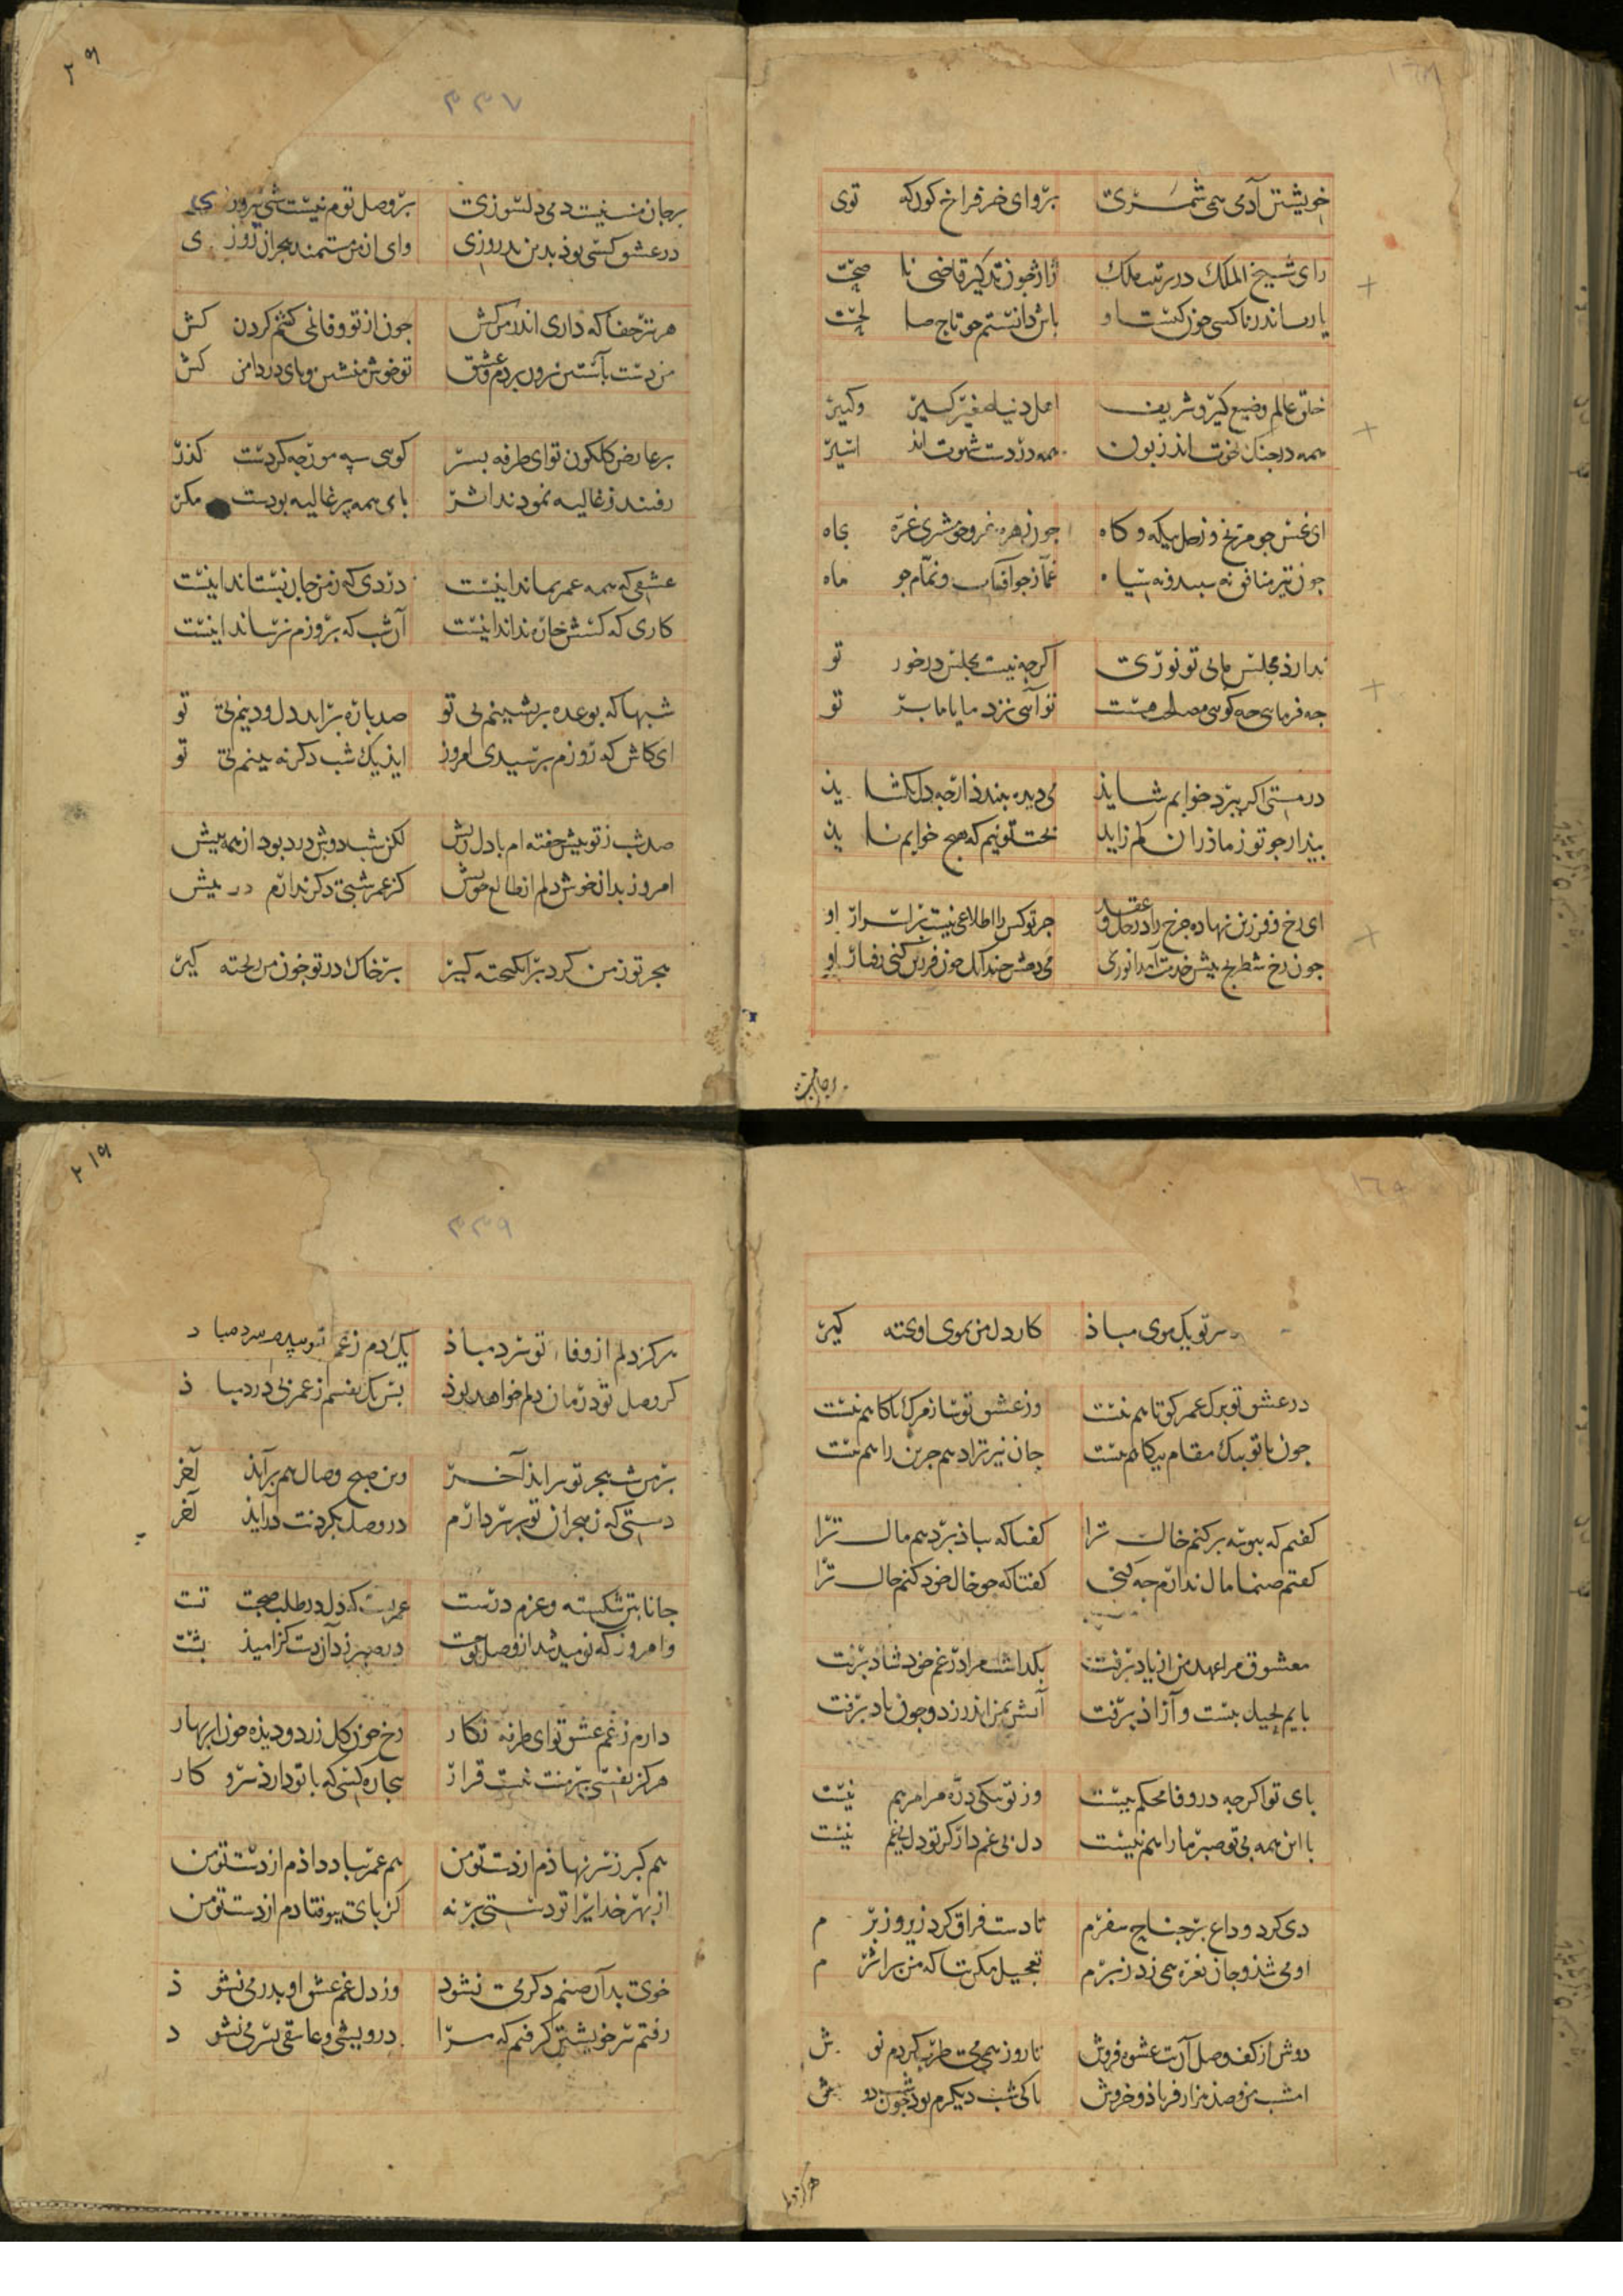 خویشتن آدمی همی شمری برو ای خر فراخ کون که توی
رای شیخ الملک در ترتیب ملک ژاژ چون تذکیر قاضی نا
خلق عالم وضیع کیر و شریف اهل دنیا صغیر کسیر و کبیر
همه در جنک نخوت اند زبون همه در دست شهوت اند اسیر
ای نحس چو مریخ و زحل بیکه و کاه چون زهره غر و چو مشتری غره بجاه
چون تیر منافق نه سبید و نه سیاه غماز چو آفتاب و نمام چو ماه
ندارد مجلس ما بی تو نوری اکرچه نیست مجلس در خور تو
چه فرمایی چه کویی مصلحت چیست تو آیی نزد ما یا ما بر تو
در مستی اکر ببرد خوابم شاید می دیده ببندد ارچه دل بکشاید
بیدار چو تو ز مادران کم زاید بخت تو نیم که هیچ خوابم ناید
ای رخ و فرزین نهاده چرخ را در حل و عقد جز تو کس را اطلاعی نیست بر اسرار او
چون رخ شطرنج بیش خدمت آمد انوری
بر جان منست دمی دلسوزی بر وصل تو م نیست شبی پیروزی
در عشق کسی بود بدین بد روزی وای از من مستمند هجران روزی
هر تیر جفا که داری اندر ترکش چون از تو وفا نمی کشم کردن کش
من دست بآستین برون بردم عشق تو خوش منشین و پای در دامن کش
بر عارض کلکون تو ای طرفه بسر کویی سپه مورچه کردست کذر
رفتند و ز غالیه نمودند اثر بای همه پر غالیه بودست مکر
عشقی که همه عمر بماند اینست دردی که ز من جان بستاند اینست
کاری که کسش چاره نداند اینست آن شب که بروزم نرساند اینست
شبها که بوعده بر نشینم بی تو صد باره براید دل و دینم بی تو
ای کاش که روزم برسیدی امروز این یک شب دکر نه بینم بی تو
صد شب ز تو بیش خفته ام با دل ریش لکن شب دوش درد بود از همه بیش
امروز بدان خوش دلم از طالع خویش کز عمر شبی دکر ندارم در بیش
هجر تو ز من کرد برانکیخته کیر بر خاک در تو خون من ریخته کیر
سر تو یک موی مباذ کار دل من بموی اویخته کیر
در عشق تو برک عمر کوتاهم نیست وز عشق تو ساز مرک ناکاهم نیست
چون با تو بیک مقام بیکاهم نیست جان نیز ترا دهم جزین راهم نیست
کفتم که ببوسه بر کنم خال ترا کفتا که بباذ بر دهم مال ترا
کفتم صنما مال ندارم چه کنی کفتا که چو خال خود کنم حال ترا
معشوق مرا عهد من از یاد برفت بکذاشت مرا در غم خود شاد برفت
پایم بحیل ببست و آزاذ برفت آتش بمن اندر زد و چون باد برفت
بای تو اکرچه در وفا محکم نیست وز تو بیکی ذره مرا مرهم نیست
با این همه بی تو صبر ما را هم نیست دل بی غم دار کر تو دل بی غم نیست
دی کرد وداع بر جناح سفرم تا دست فراق کرد زیر و زبرم
او می شذ و جان نعره همی زد ز برم تعجیل مکن بتا که من بر اثرم
دوش از کف وصل آن بت عشوه فروش تا روز همی می طرب کردم نوش
امشب من و صد هزار فریاذ و خروش تا کی شب دیکرم بود چون شب دوش
هرکز دلم
هرکز دلم از وفای تو سرد مباذ یک دم ز غم تو سیر سرد مباد
کر وصل تو درمان دلم خواهد بود بس یک نفسم ز عمر بی درد مباذ
بر من شب هجر تو سرایذ آخر وین صبح وصال هم برآیذ آخر
دستی که ز هجران تو بر سر دارم در وصل بکردنت درآیذ آخر
جانا بتن شکسته و عزم درست عمریست که دل در طلب صحبت تست
وامروز که نومید شد از وصل تو در صبر زد آن دست کز امید بشست
دارم ز غم عشق تو ای طرفه نکار رخ چون کل زرد و دیذه چون ابر بهار
هرکز نفسی بر منت نیست قرار بیچاره کسی که با تو دارد سر و کار
هم کبر ز سر نهاذم از دست تو من هم عمر بباد داذم از دست تو من
از بهر خدایرا تو دستی بر نه کز بای بیوفتادم از دست تو من
خوی بد آن صنم دکر می نشود وز دل غم عشق او بدر می نشوذ
رفتم سر خویشتن کرفتم که مرا درویشی و عاشقی بسر می نشود